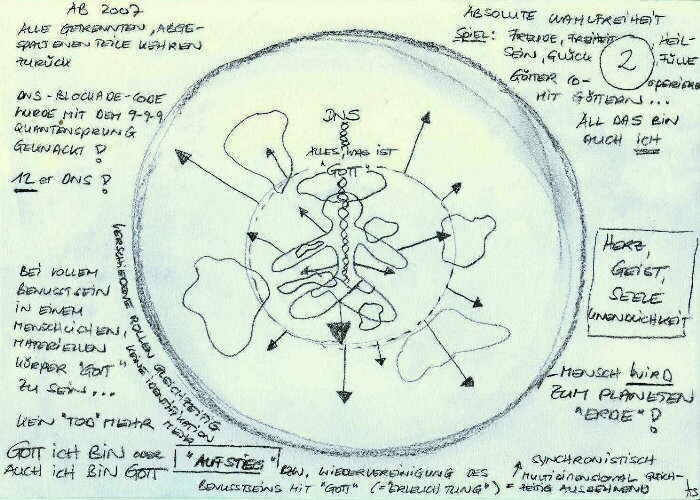 AB 2007
ALLE GETRENNTEN, ABGE-
SPALTENEN TEILE KEHREN
ZURÜCK
DNS-BLOCKADE-CODE
WURDE MIT DEM 9-9-9
QUANTENSPRUNG
GEKNACKT!
12er DNS!
BEI VOLLEM
BEWUSSTSEIN
IN EINEM
MENSCHLICHEN,
MATERIELLEN
KÖRPER "GOTT"
ZU SEIN...
KEIN "TOD" MEHR
GOTT ICH BIN ODER
AUCH ICH BIN GOTT
VERSCHIEDENE ROLLEN GLEICHZEITIG
KEINE IDENTIFIKATION
MEHR
DNS
ALLES, WAS IST
"GOTT"
ABSOLUTE WAHLFREIHEIT
SPIEL: FREUDE, FREIHEIT, HEIL-
SEIN, GLÜCK, FÜLLE
2
GÖTTER CO-OPERIEREN
MIT GÖTTERN...
ALL DAS BIN
AUCH ICH
HERZ,
GEIST,
SEELE
UNENDLICHKEIT
MENSCH WIRD
ZUM PLANETEN
"ERDE"!
"AUFSTIEG" BZW. WIEDERVEREINIGUNG DES
BEWUSSTSEINS MIT "GOTT" (="ERLEUCHTUNG")
SYNCHRONISTISCH
MULTIDIMENSIONAL GLEICH-
ZEITIG AUSDEHNEND